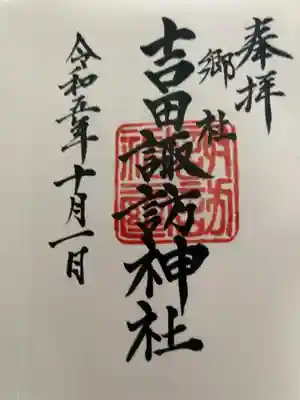 奉拝
郷社
吉田諏訪神社
令和五年十月一日